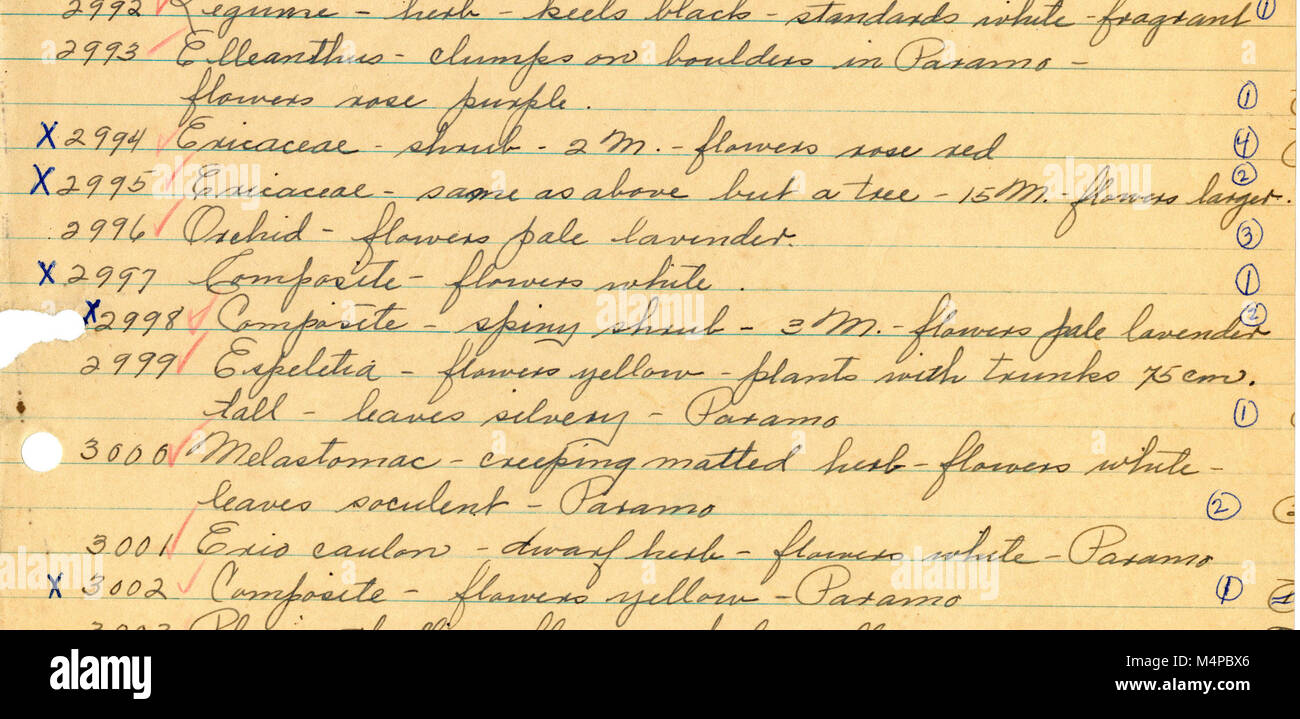 2992 Legume - herb - keels black - standards white - fragrant 1
2993 Elleanthus - clumps on boulders in Paramo -
flowers rose purple. 1
X 2994 Ericaceae - shrub - 2 M. - flowers rose red 4
X 2995 Ericaceae - same as above but a tree - 15 M. - flowers larger. 2
2996 Orchid - flowers pale lavender. 3
X 2997 Composite - flowers white. 1
X 2998 Composite - spiny shrub - 3 M. - flowers pale lavender 2
2999 Espeletia - flowers yellow - plants with trunks 75 cm.
tall - leaves silvery - Paramo 1
3000 Melastomac - creeping matted herb - flowers white -
leaves soculent - Paramo 2
3001 Erio caulon - dwarf herb - flowers white - Paramo
X 3002 Composite - flowers yellow - Paramo 1
alamy
Image ID: M4PBX6
www.alamy.com